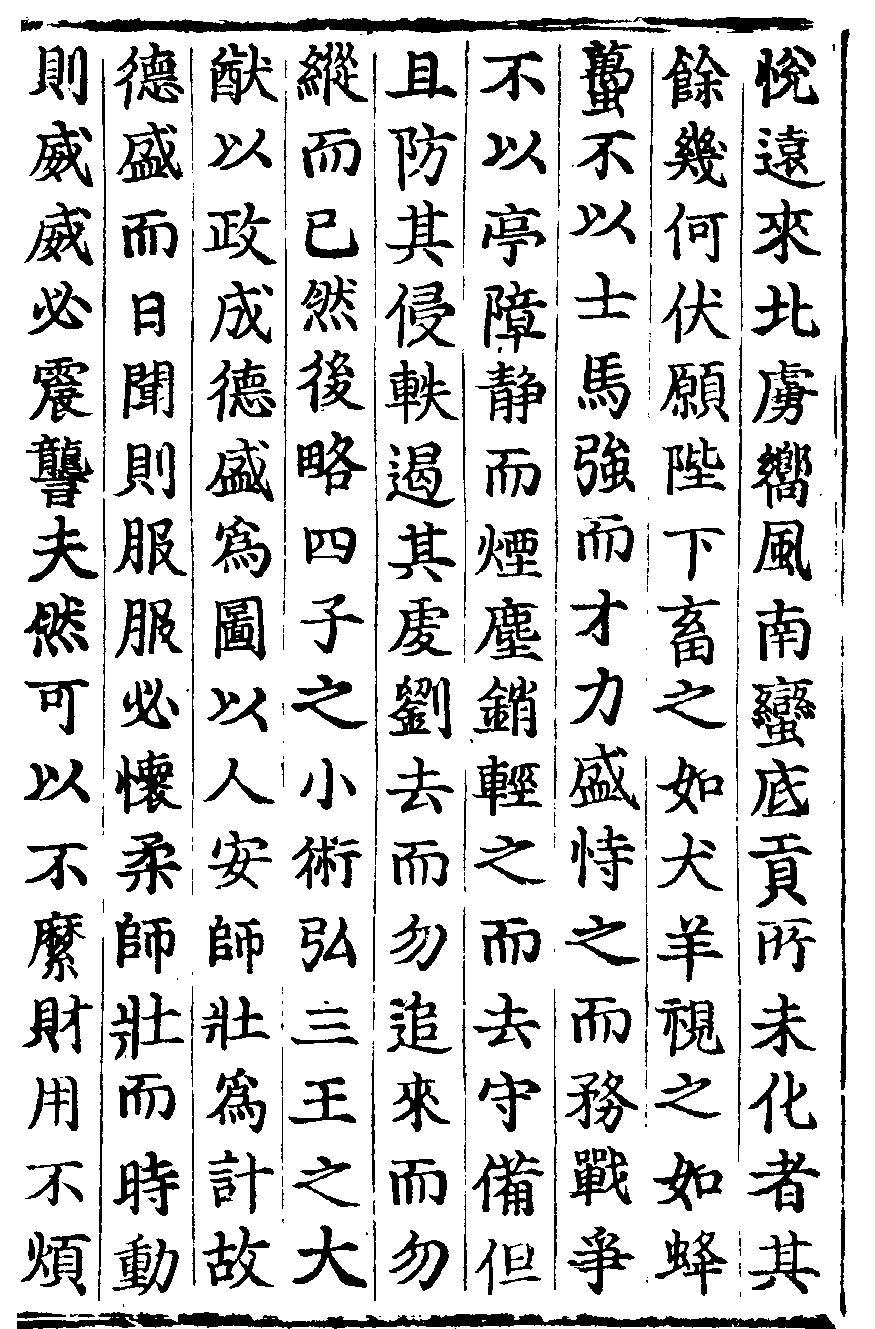 悅遠來北虜嚮風南蠻底貢所未化者其
餘幾何伏願陛下畜之如犬羊視之如蜂
蠆不以士馬強而才力盛恃之而務戰爭
不以亭障靜而煙塵銷輕之而去守備但
且防其侵軼遏其虔劉去而勿追來而勿
縱而已然後略四子之小術弘三王之大
猷以政成德盛爲圖以人安師壯爲計故
德盛而日聞則服服必懷柔師壯而時動
則威威必震讋夫然可以不縻財用不煩